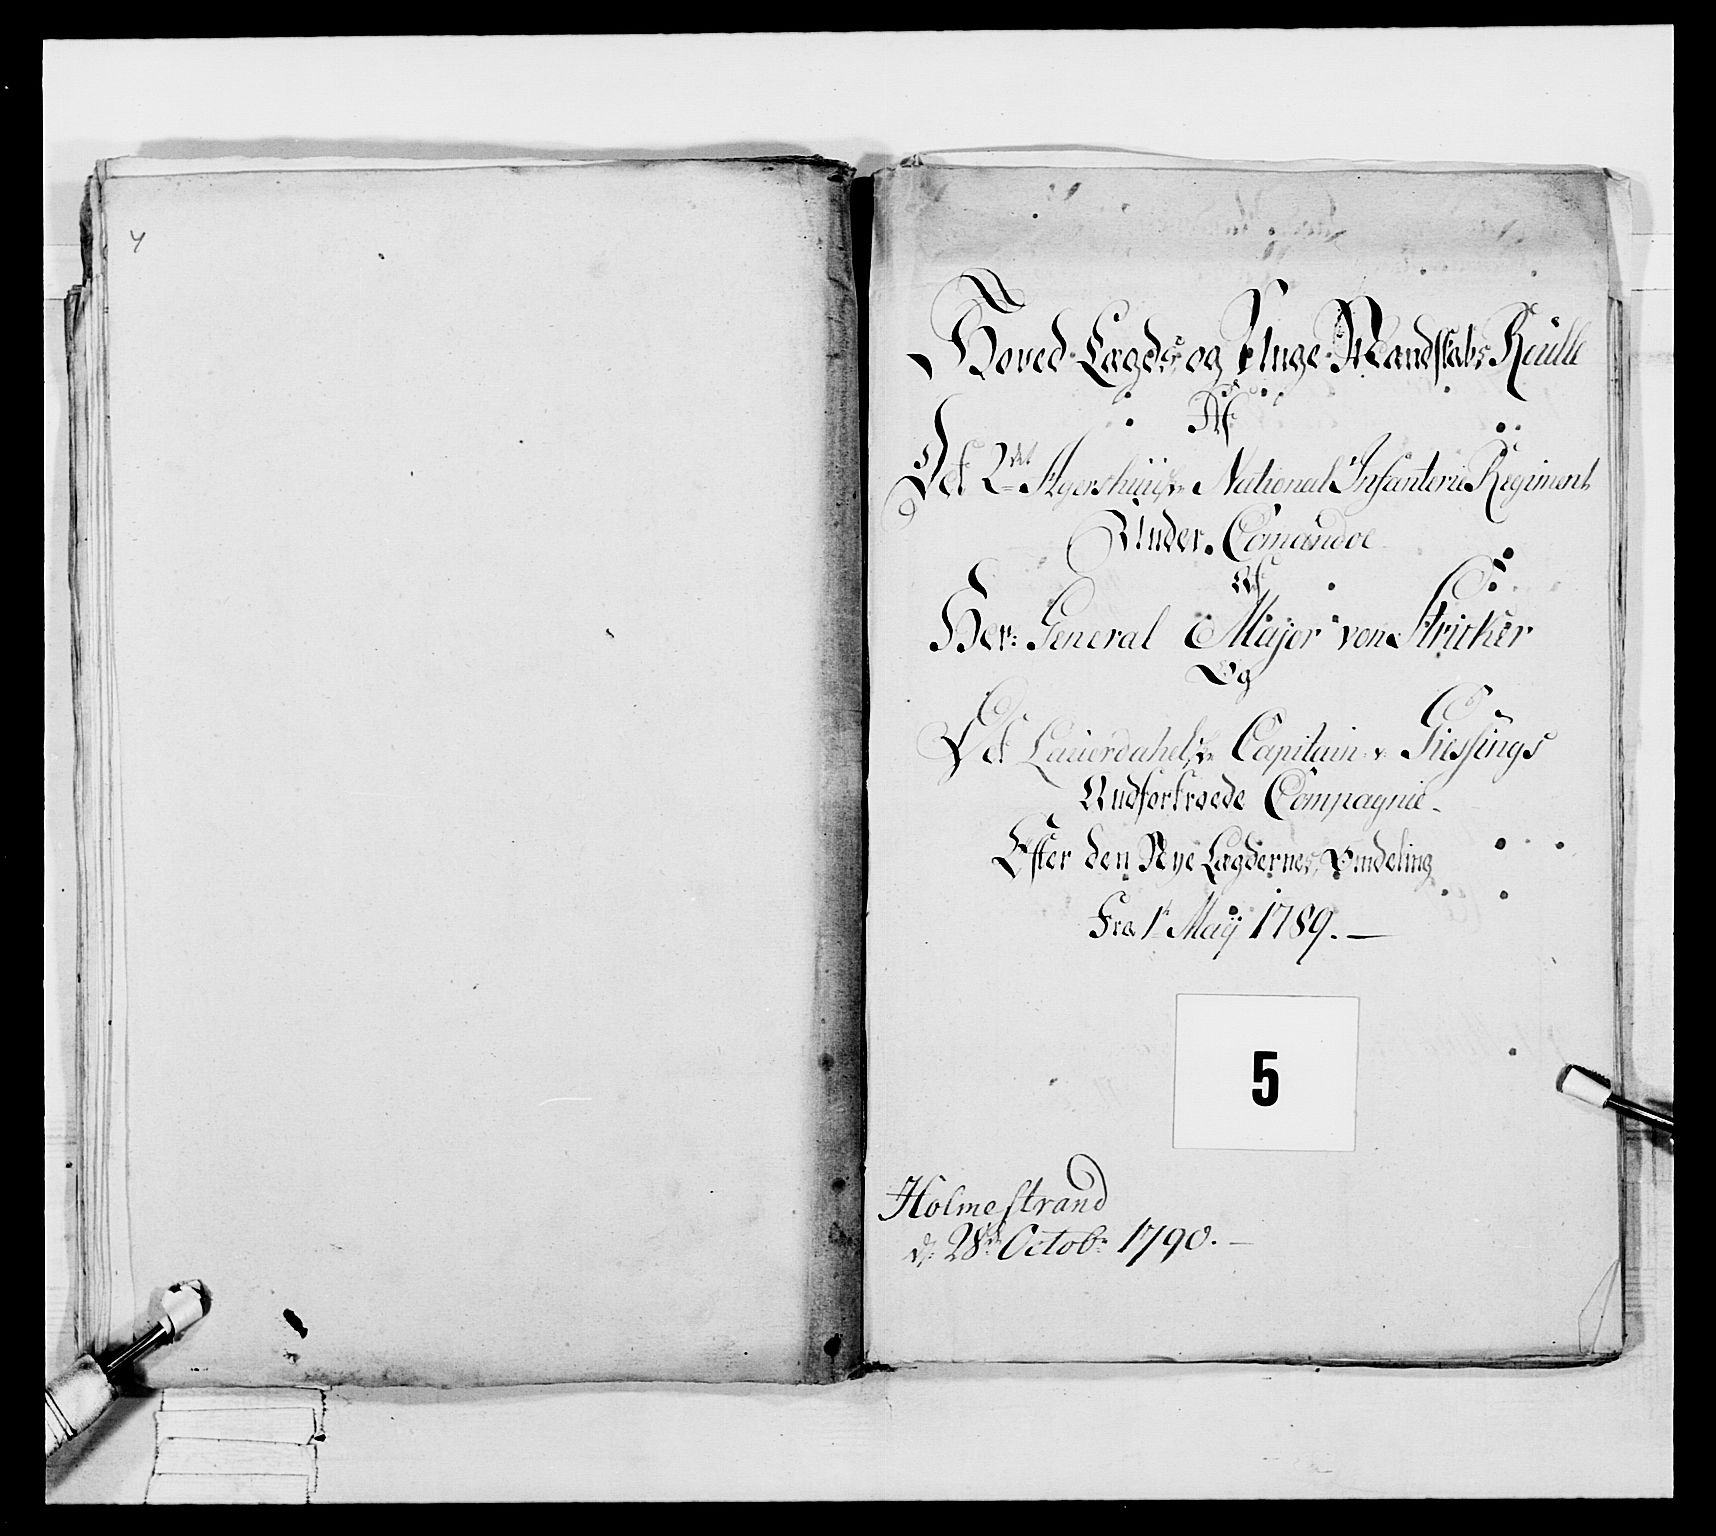 4
Hoved Lægds og Unge Mandskabs Roulle
Af
Det 2det Agershuusiske National Infanterie Regiment
Under Comandoe
Af
Her: General Major von Stricker
Og
Det Lauerdahelske Capitain v: Giessings
Andfortroede Compagnie
Efter den Nye Lægdernes Omdeling
Fra 1t Maÿ 1789.
5
Holmestrand
d: 28de Octobr 1790.